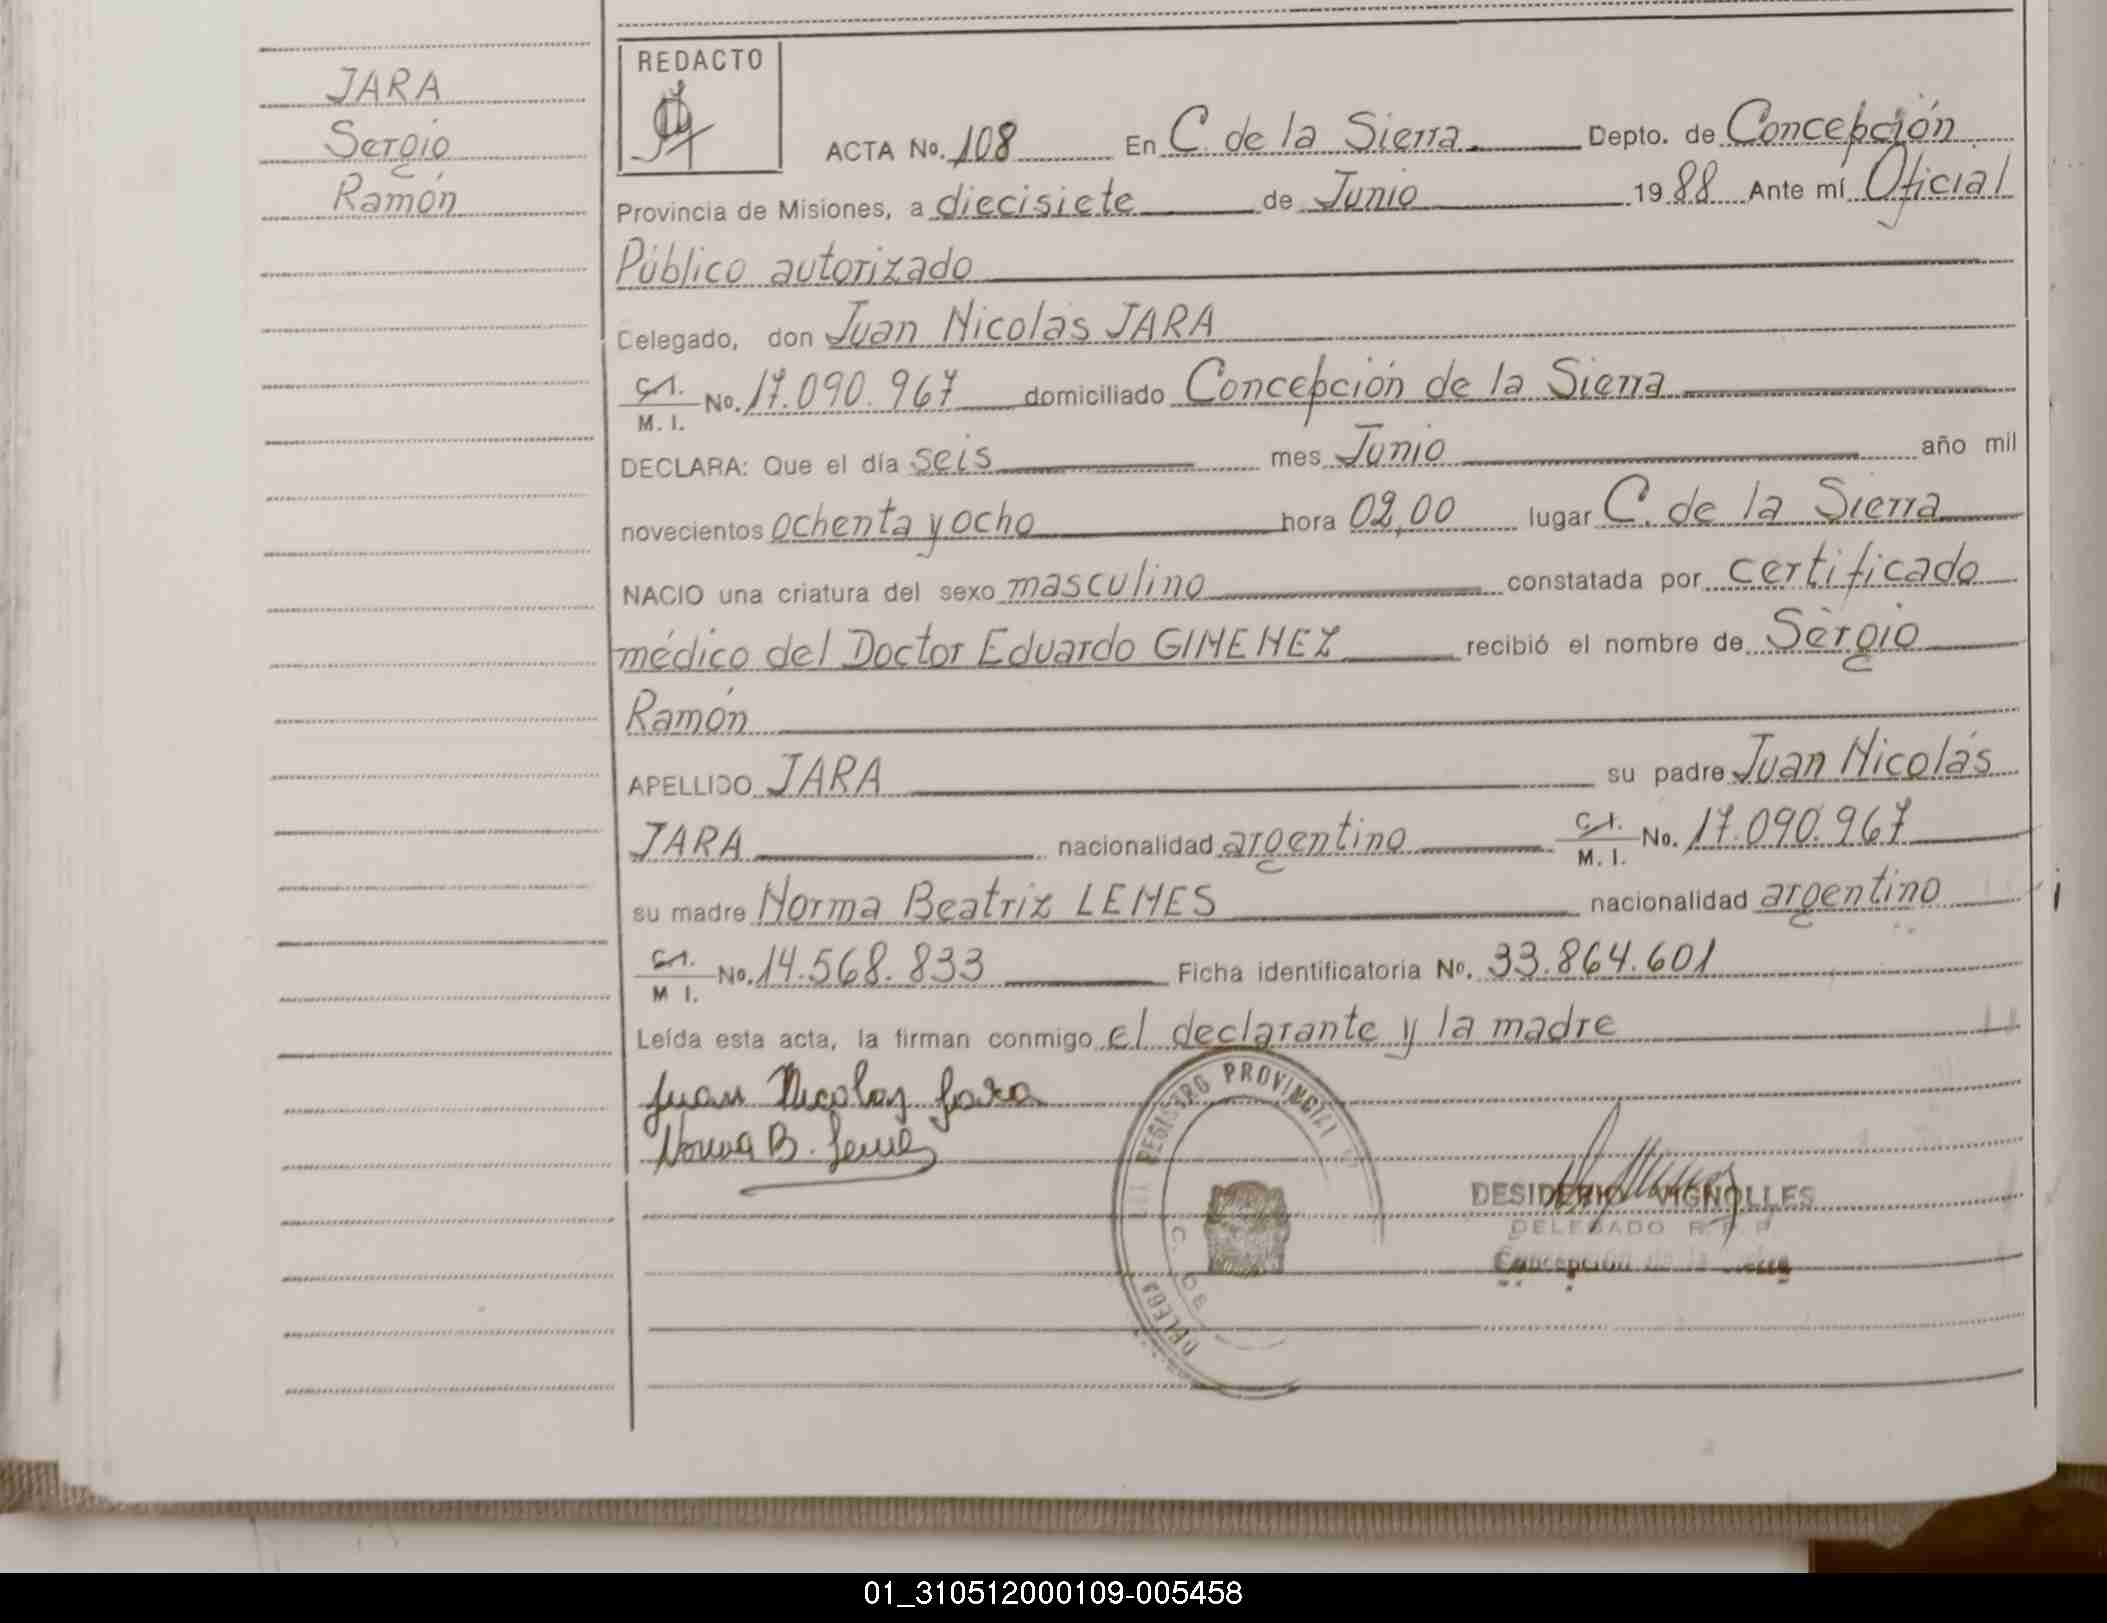 JARA
Sergio
Ramón
REDACTO
ACTA No. 108 En C. de la Sierra Depto. de Concepción
Provincia de Misiones, a diecisiete de Junio 1988 Ante mí Oficial
Público autorizado
Celegado, don Juan Nicolás JARA
C.I. M. I. No. 17.090.967 domiciliado Concepción de la Sierra
DECLARA: Que el día seis mes Junio año mil
novecientos ochenta y ocho hora 02,00 lugar C. de la Sierra
NACIO una criatura del sexo masculino constatada por certificado
médico del Doctor Eduardo GIMENEZ recibió el nombre de Sergio
Ramón
APELLIDO JARA su padre Juan Nicolás
JARA nacionalidad argentino C.I. M. I. No. 17.090.967
su madre Norma Beatriz LEMES nacionalidad argentino
C.I. M I. No. 14.568.833 Ficha identificatoria No. 33.864.601
Leída esta acta, la firman conmigo el declarante y la madre
Juan Nicolas Jara
Norma B. Lemes
REGISTRO PROVINCIAL
DESIDERIO VIGNOLLES
DELEGADO R. P. P
Concepción de la Sierra
01_310512000109-005458